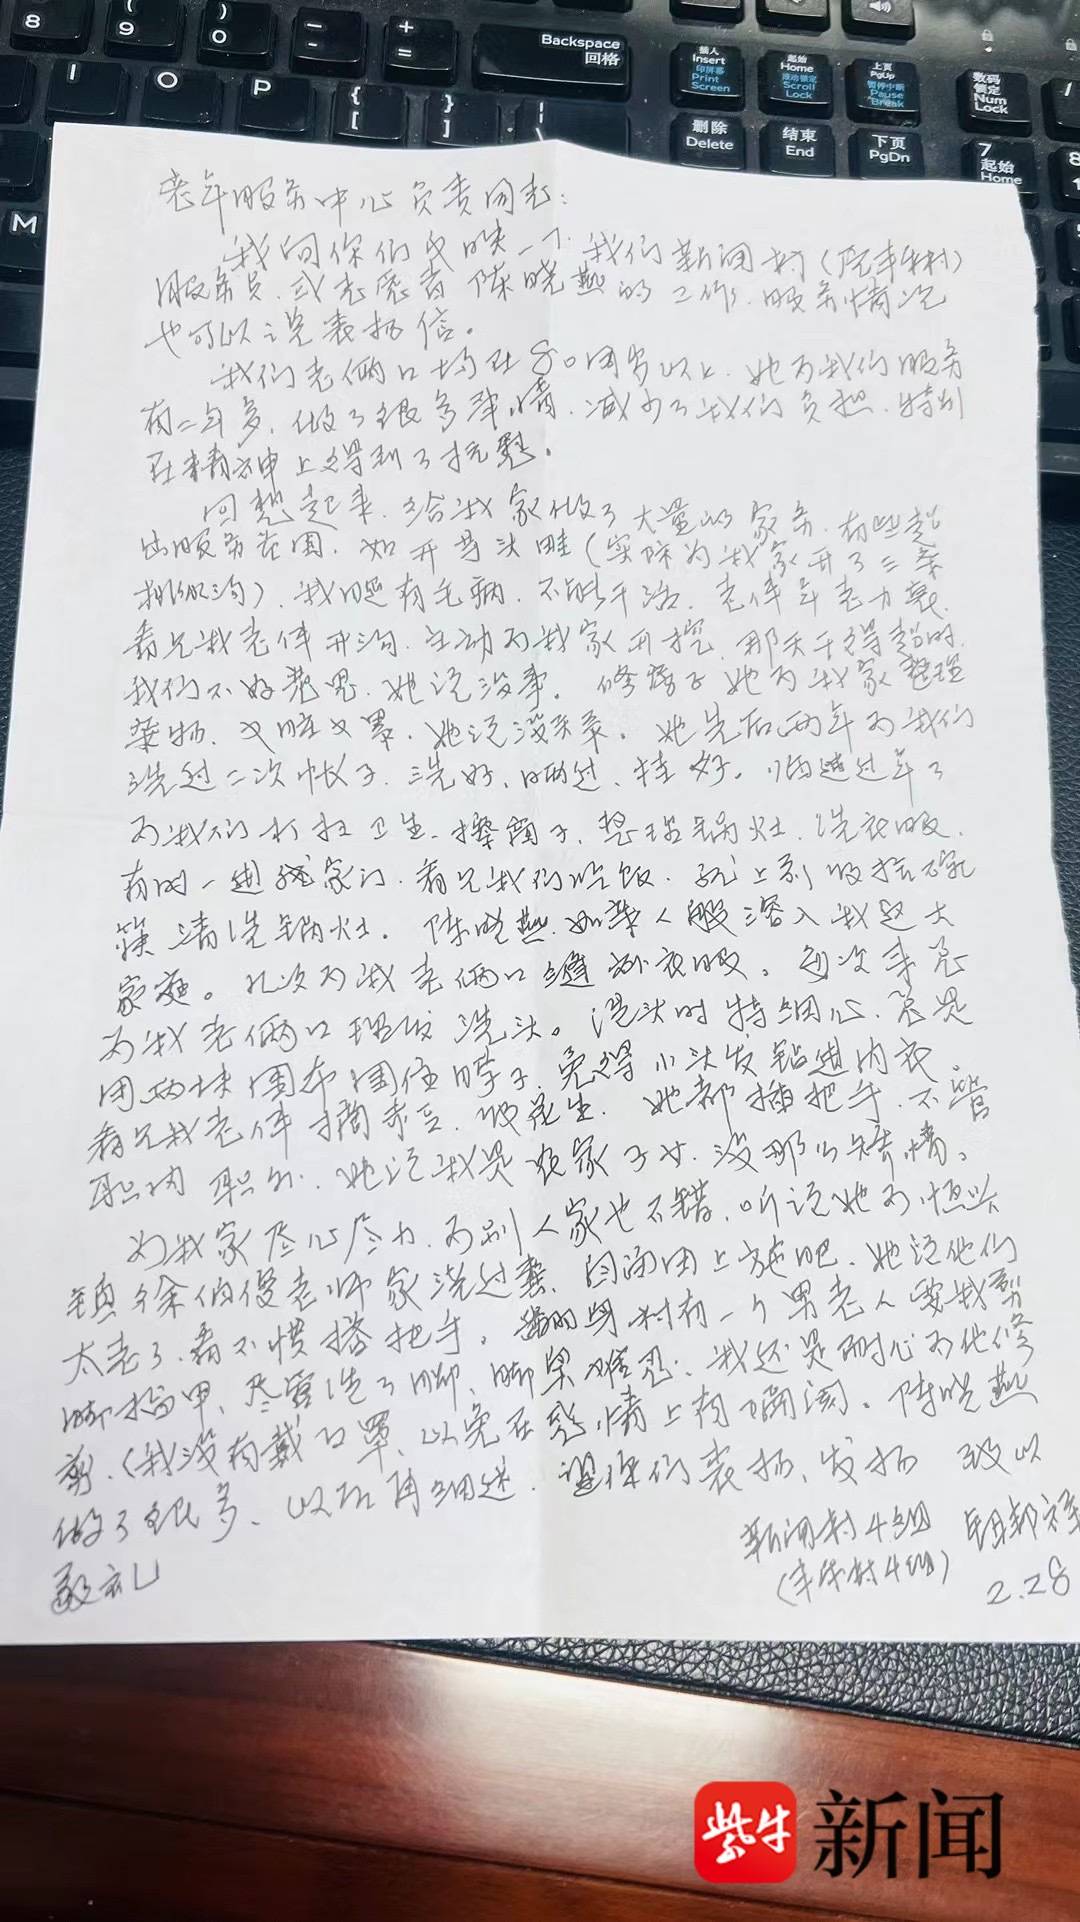 8 ( 9 ) 0 - + = Backspace 回格
插入 Insert 印屏幕 Print Screen
起始 Home 滚动锁定 Scroll Lock
上页 PgUp 暂停中断 Pause Break
数码锁定 Num Lock
I O P { [ } ] | \
删除 Delete
结束 End
下页 PgDn
7 起始 Home
8
M
老年服务中心负责同志：
我向你们反映一下，我们新闸村
服务员，或志愿者陈晓燕的工作，服务情况
也可以说表扬信。
我们老俩口均在80周岁以上，她为我们服务
有二年多，做了很多事情，减少了我们负担，特别
在精神上得到了抚慰。
回想起来，给我家做了大量的家务，有些超
出服务范围，如开 头畦（实际为我家开了三条
沟），我腿有毛病，不能干活，老伴年老力衰，
看见我老伴开沟，主动为我家开挖，那天干得超时，
我们不好意思，她说没事。修房子她为我家整理
杂物，又脏又累，她说没关系。她先后两年为我们
洗过二次帐子，洗好、晒过、挂好。临过年了
为我们打扫卫生，擦窗子，整理锅灶，洗衣服，
有时一进我家门，看见我们吃饭，马上就收拾碗
筷清洗锅灶。陈晓燕如亲人般溶入我这大
家庭。几次为我老俩口缝补衣服。每次来总
为我老俩口理发洗头。洗头时特细心，总是
用两块围布围住脖子，免得小头发钻进内衣。
看见我老伴摘 花生，她都插把手，不管
职内职外，她说我是农家子女，没那么矫情。
为我家尽心尽力，为别人家也不错，听说她为恒兴
镇徐伯俊老师家浇过粪，田上施肥，她说他们
太老了，看不惯搭把手。村有一个男老人要我剪
脚指甲，尽管洗了脚，脚臭难忍，我还是耐心为他修
剪，（我没有戴口罩，以免在感情上有隔阂。陈晓燕
做了很多，以后再细述，望你们表扬、发扬 致以
敬礼
新闸村4组
（ 村4组） 2.28
紫牛 新闻